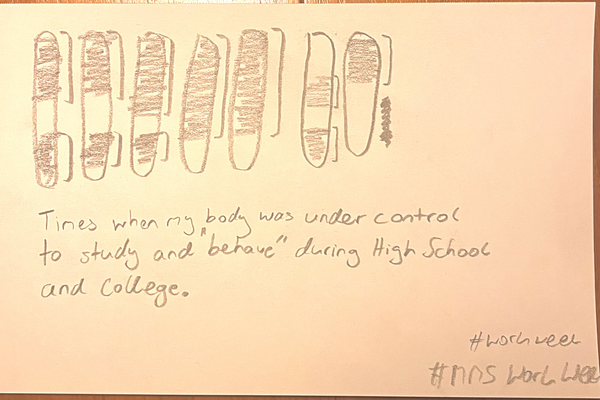 Times when my body was under control
to study and "behave" during High School
and College.
#workweek
#MDS Work Week